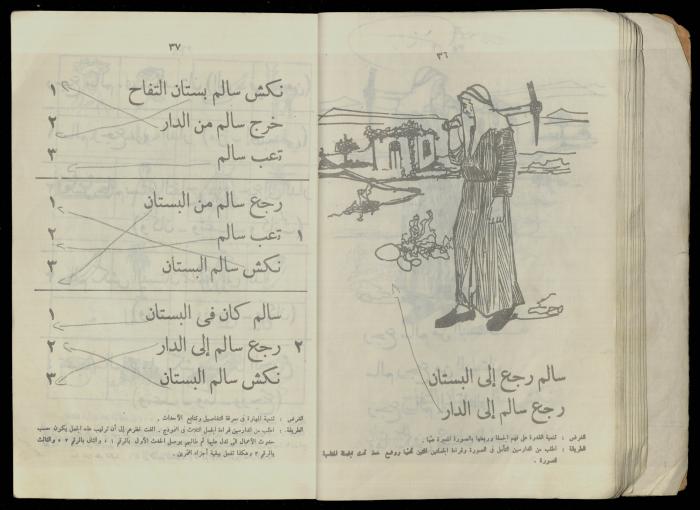 ٣٦
سالم رجع إلى البستان
رجع سالم إلى الدار
الغرض : تنمية القدرة على فهم الجملة وربطها بالصورة المعبرة عنها .
الطريقة : اطلب من الدارسين التأمل في الصورة وقراءة الجملتين اللتين تحتها ووضع خط تحت الجملة المناسبة
للصورة .
٣٧
نكش سالم بستان التفاح ١
خرج سالم من الدار ٢
تعب سالم ٣
رجع سالم من البستان ١
١ تعب سالم ٢
نكش سالم البستان ٣
سالم كان في البستان ١
٢ رجع سالم إلى الدار ٢
نكش سالم البستان ٣
الغرض : تنمية المهارة في معرفة التفاصيل وتتابع الأحداث .
الطريقة : اطلب من الدارسين قراءة الجمل الثلاث في النموذج . الفت نظرهم إلى أن ترتيب هذه الجمل يكون حسب
حدوث الأعمال التي تدل عليها ثم طالبهم بوصل الحدث الأول بالرقم ١ ، والثاني بالرقم ٢ ، والثالث
بالرقم ٣ وهكذا تفعل ببقية أجزاء التمرين .